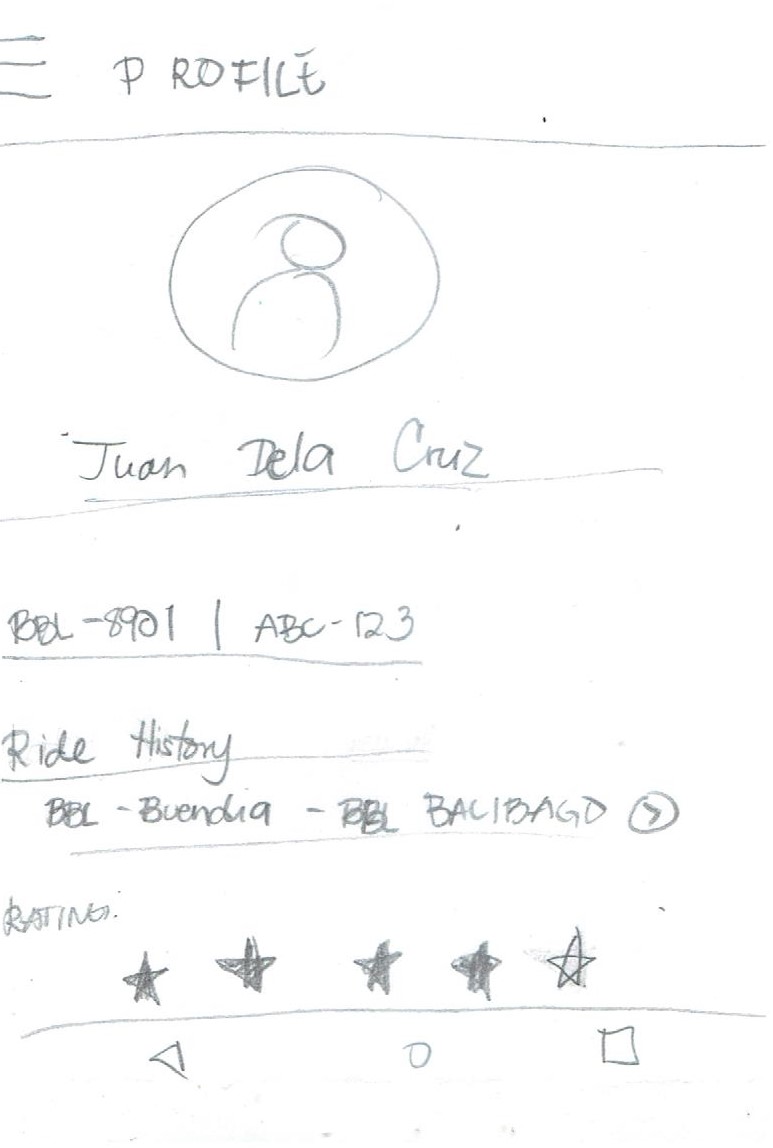 PROFILE
Juan Dela Cruz
BBL-8901 | ABC-123
Ride History
BBL - Buendia - BBL BALIBAGO
RATING: